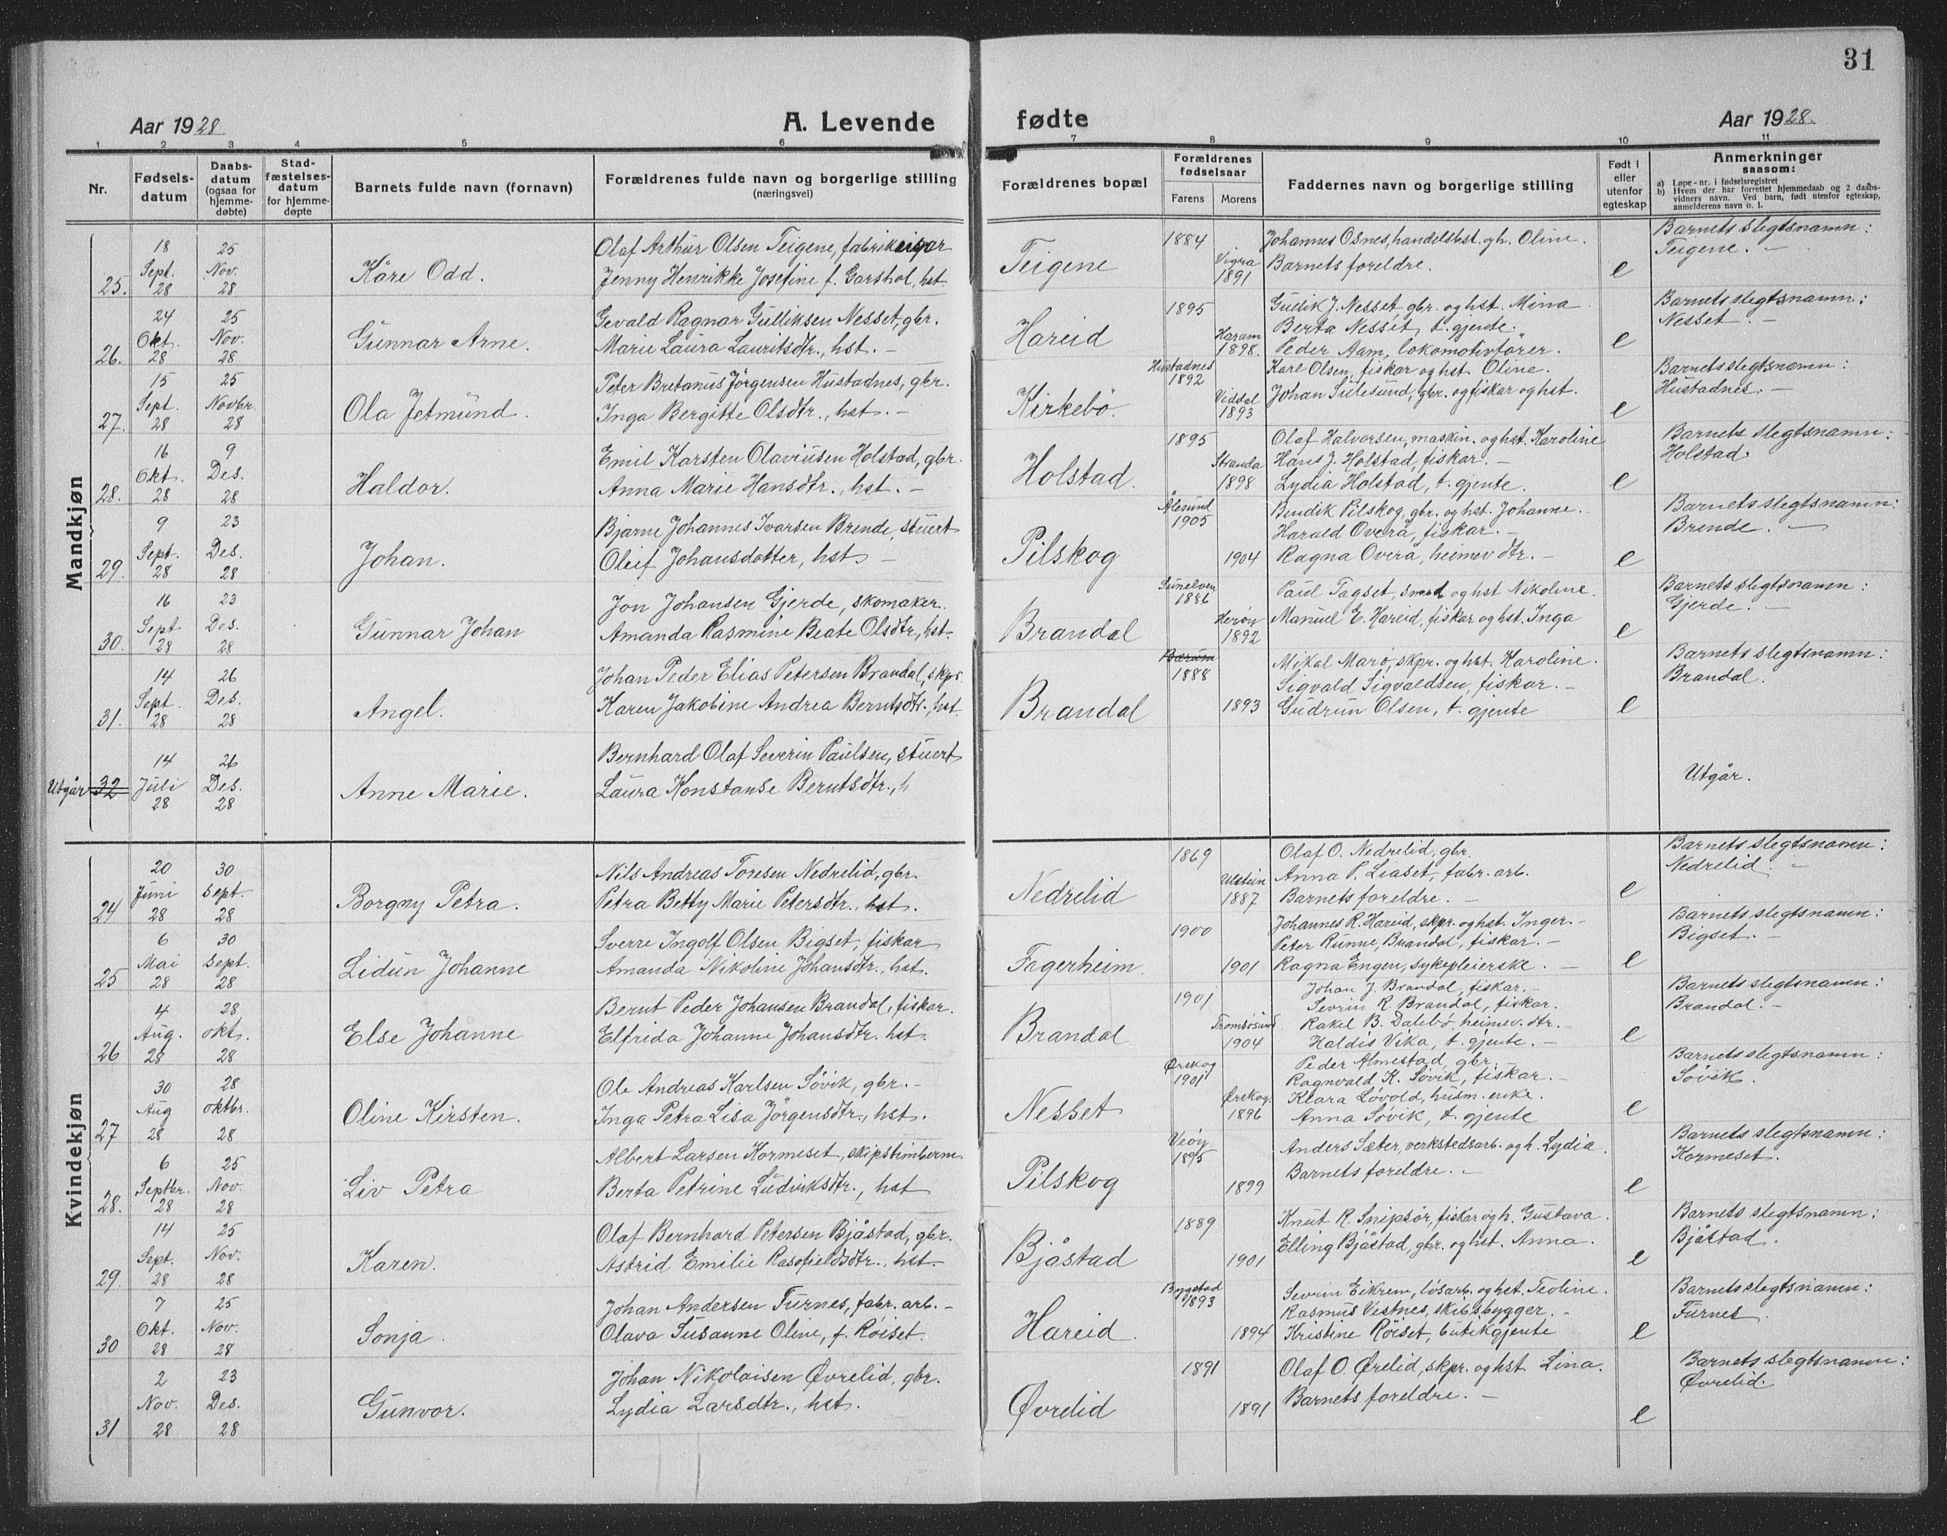 31
Aar 1928
A. Levende
fødte
Aar 1928.
1 2 3 4 5 6 7 8 9 10 11
Nr.
Fødsels-
datum
Daabs-
datum
(ogsaa for
hjemme-
døbte)
Stad-
fæstelses-
datum
for hjemme-
døpte
Barnets fulde navn (fornavn)
Forældrenes fulde navn og borgerlige stilling
(næringsvei)
Forældrenes bopæl
Forældrenes
fødselsaar
Farens
Morens
Faddernes navn og borgerlige stilling
Født i
eller
utenfor
egteskap
Anmerkninger
saasom:
a) Løpe-nr. i fødselsregistret
b) Hvem der har forrettet hjemmedaab og 2 daabs-
vidners navn. Ved barn, født utenfor egteskap,
anmelderens navn o. l.
Mandkjøn
25. 18 Sept. 28 25 Nov. 28 Kåre Odd.
Olaf Arthur Olsen Teigene, fabrikeigar
Jenny Henrikke Josefine f. Garshol, hst.
Teigene 1884 Vigra 1891
Johannes Osnes, handelsbst. og h. Oline.
Barnets foreldre.
e
Barnets slegtsnamn:
Teigene. -
26. 24 Okt. 28 25 Nov. 28 Gunnar Arne.
Gevald Ragnar Gulliksen Nesset, gbr.
Marie Laura Lauritsdtr., hst. -
Hareid 1895 Haram 1898.
Gullik J. Nesset gbr. og hst. Mina
Berta Nesset t. gjente.
Peder Aam, lokomotivfører.
e
Barnets slegtsnamn:
Nesset. -
27. 15 Sept. 28 25 Novbr. 28 Ola Jetmund.
Peter Bretanus Jörgensen Hustadnes, gbr.
Inga Bergitte Olsdtr., hst. -
Kirkebö. Hustadnes 1892 Viddal 1893
Karl Olsen, fiskar og hst. Oline.
Johan Sulesund, gbr. og fiskar og hst.
e
Barnets slegtsnamn:
Hustadnes. -
28. 16 Okt. 28 9 Des. 28 Haldor.
Emil Karsten Olaviusen Holstad, gbr.
Anna Marie Hansdtr., hst. -
Holstad. 1895 Stranda 1898
Olaf Halvorsen, maskin. og hst. Karoline
Hans J. Holstad, fiskar. -
Lydia Holstad, t. gjente.
e
Barnets slegtsnamn:
Holstad.
29. 9 Sept. 28 23 Des. 28 Johan.
Bjarne Johannes Ivarsen Brende, stuert
Oleif Johansdotter, hst -
Pilskog Ålesund 1905 1904
Bendik Pilskog, gbr. og hst. Johanne.
Harald Overå, fiskar. -
Ragna Overå, heimev. dtr. -
e
Barnets slegtsnamn:
Brende. -
30. 16 Sept 28 23 Des. 28 Gunnar Johan
Jon Johansen Gjerde, skomaker.
Amanda Rasmine Beate Olsdtr, hst.
Brandal Sunelven 1886 Herøy 1892
Paul Tagset, smed og hst Nikoline.
Manuel E. Hareid, fiskar og hst. Inga
e
Barnets slegtsnamn:
Gjerde. -
31. 14 Sept. 28 26 Des. 28 Angel.
Johan Peder Elias Petersen Brandal, skpr.
Karen Jakobine Andrea Berntsdtr., hst.
Brandal 1888 1893
Mikal Marø, skpr. og hst. Karoline.
Sigvald Sigvaldsen, fiskar. -
Gudrun Olsen, t. gjente
e
Barnets slegtsnamn:
Brandal.
Utgår 32 14 Juli 28 26 Des. 28 Anne Marie.
Bernhard Olaf Severin Paulsen, stuert
Laura Konstanse Berntsdtr., h
Utgår.
Kvindekjøn
24 20 Juni 28 30 Sept. 28 Borgny Petra.
Nils Andreas Toresen Nedrelid, gbr.
Petra Betty Marie Petersdtr., hst.
Nedrelid 1869 Ulstein 1887
Olaf O. Nedrelid, gbr.
Anna P. Liaset, fabr. arb.
Barnets foreldre. -
e
Barnets slegtsnamn:
Nedrelid. -
25 6 Mai 28 30 Sept. 28 Lidun Johanne
Sverre Ingolf Olsen Bigset, fiskar
Amanda Nikoline Johansdtr., hst.
Fagerheim. 1900 1901
Johannes R. Hareid, skpr. og hst. Inger. -
Peter Runne, Brandal, fiskar. -
Ragna Engen, sykepleierske. -
e
Barnets slegtsnamn:
Bigset. -
26 4 Aug. 28 28 Okt. 28 Else Johanne
Bernt Peder Johansen Brandal, fiskar.
Elfrida Johanne Johansdtr. hst.
Brandal 1901 Tromsøsund 1904
Johan J. Brandal, fiskar. -
Sevrin R. Brandal, fiskar.
Rakel B. Dalebø, heimev. dtr. -
Haldis Vika, t. gjente. -
e
Barnets slegtsnamn:
Brandal. -
27 30 Aug 28 28 Oktbr. 28 Oline Kirsten.
Ole Andreas Karlsen Søvik, gbr. -
Inga Petra Lisa Jörgensdtr., hst.
Nesset Ørskog 1901 Ørskog. 1896
Peder Almestad, gbr. -
Ragnvald K. Søvik, fiskar. -
Klara Løvold, husm. enke.
Anna Søvik, t. gjente
e
Barnets slegtsnamn:
Søvik.
28. 6 Septbr. 28 25 Nov. 28 Liv Petra
Albert Larsen Kormeset, skipstimberm.
Berta Petrine Ludviksdtr., hst
Pilskog Veöy 1895 1899
Anders Sæter, verkstedsarb. og h. Lydia.
Barnets foreldre. -
e
Barnets slegtsnamn:
Kormeset.
29. 14 Sept. 28 25 Nov. 28 Karen.
Olaf Bernhard Petersen Bjåstad, gbr.
Astrid Emilie Rasofieldsdtr., hst.
Bjåstad 1889 1901
Knut R. Snipsør, fiskar og h. Gustava.
Elling Bjåstad, gbr. og hst. Anna.
e
Barnets slegtsnamn:
Bjåstad.
30 7 Okt. 28 25 Nov. 28 Sonja.
Johan Andersen Furnes, fabr. arb. -
Olava Susanne Oline, f. Röiset.
Hareid. Bygstad 1893 1894
Sevrin Eikrem, løsarb. og hst. Teoline.
Rasmus Vestnes, skibsbygger. -
Kristine Røiset, butikgjente
e
Barnets slegtsnamn:
Furnes.
31 2 Nov. 28 23 Des. 28 Gunvor.
Johan Nikolaisen Øvrelid, gbr.
Lydia Larsdtr., hst.
Øvrelid 1891 1891
Olaf O. Ørelid, skpr. og hst Lina.
Barnets foreldre. -
e
Barnets slegtsnamn:
Øvrelid.